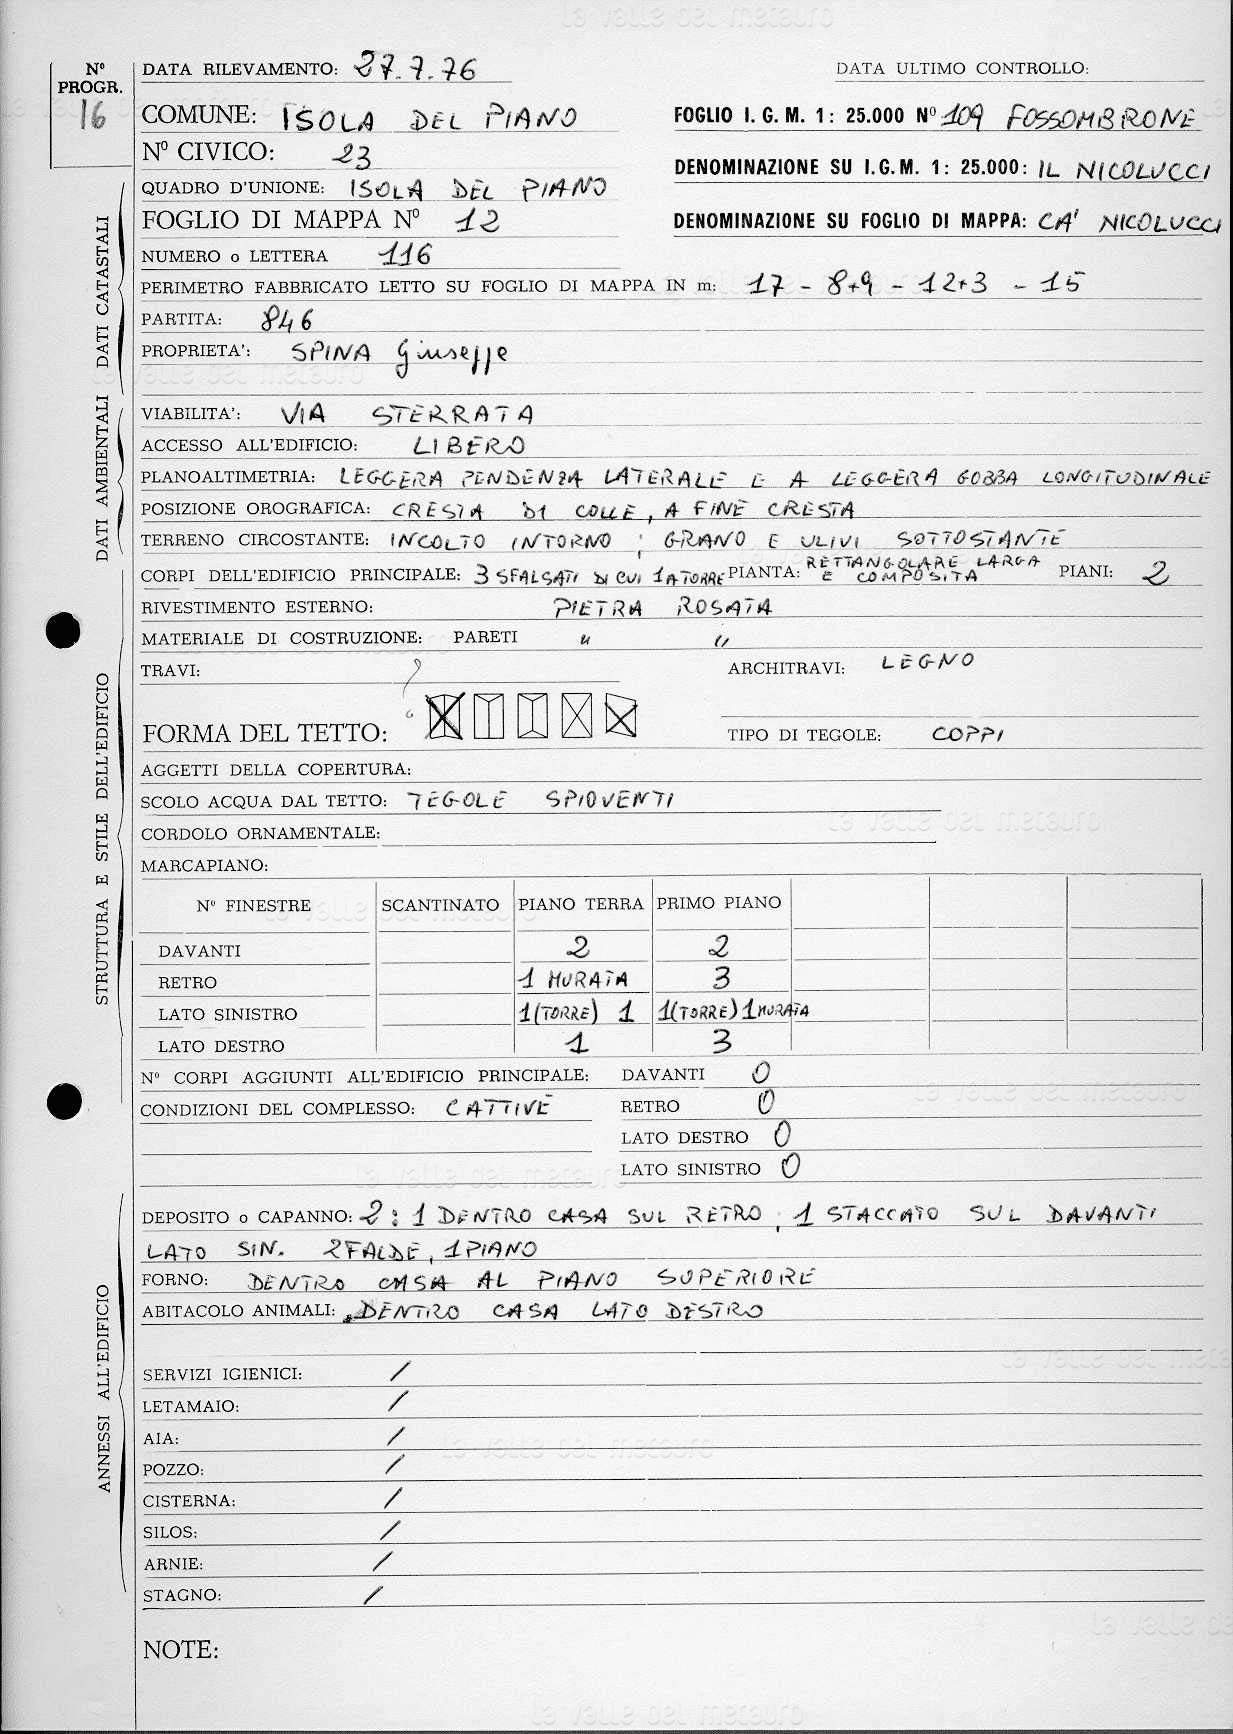 la valle del metauro
Nº PROGR.
16
DATA RILEVAMENTO: 27.7.76
DATA ULTIMO CONTROLLO:
COMUNE: ISOLA DEL PIANO
FOGLIO I.G.M. 1: 25.000 Nº 109 FOSSOMBRONE
Nº CIVICO: 23
DENOMINAZIONE SU I.G.M. 1: 25.000: IL NICOLUCCI
QUADRO D'UNIONE: ISOLA DEL PIANO
FOGLIO DI MAPPA Nº 12
DENOMINAZIONE SU FOGLIO DI MAPPA: CA' NICOLUCCI
DATI CATASTALI
NUMERO o LETTERA 116
PERIMETRO FABBRICATO LETTO SU FOGLIO DI MAPPA IN m: 17 - 8+9 - 12+3 - 15
PARTITA: 846
PROPRIETA': SPINA Giuseppe
DATI AMBIENTALI
VIABILITA': VIA STERRATA
ACCESSO ALL'EDIFICIO: LIBERO
PLANOALTIMETRIA: LEGGERA PENDENZA LATERALE E A LEGGERA GOBBA LONGITUDINALE
POSIZIONE OROGRAFICA: CRESTA DI COLLE, A FINE CRESTA
TERRENO CIRCOSTANTE: INCOLTO INTORNO ; GRANO E ULIVI SOTTOSTANTE
STRUTTURA E STILE DELL'EDIFICIO
CORPI DELL'EDIFICIO PRINCIPALE: 3 SFALSATI DI CUI 1 A TORRE PIANTA: RETTANGOLARE LARGA E COMPOSITA PIANI: 2
RIVESTIMENTO ESTERNO: PIETRA ROSATA
MATERIALE DI COSTRUZIONE: PARETI " "
TRAVI: ?
ARCHITRAVI: LEGNO
FORMA DEL TETTO:
TIPO DI TEGOLE: COPPI
AGGETTI DELLA COPERTURA:
SCOLO ACQUA DAL TETTO: TEGOLE SPIOVENTI
CORDOLO ORNAMENTALE:
MARCAPIANO:
Nº FINESTRE SCANTINATO PIANO TERRA PRIMO PIANO
DAVANTI 2 2
RETRO 1 MURATA 3
LATO SINISTRO 1(TORRE) 1 1(TORRE) 1 MURATA
LATO DESTRO 1 3
Nº CORPI AGGIUNTI ALL'EDIFICIO PRINCIPALE: DAVANTI 0
CONDIZIONI DEL COMPLESSO: CATTIVE
RETRO 0
LATO DESTRO 0
LATO SINISTRO 0
ANNESSI ALL'EDIFICIO
DEPOSITO o CAPANNO: 2: 1 DENTRO CASA SUL RETRO, 1 STACCATO SUL DAVANTI
LATO SIN. 2 FALDE, 1 PIANO
FORNO: DENTRO CASA AL PIANO SUPERIORE
ABITACOLO ANIMALI: DENTRO CASA LATO DESTRO
SERVIZI IGIENICI: /
LETAMAIO: /
AIA: /
POZZO: /
CISTERNA: /
SILOS: /
ARNIE: /
STAGNO: /
NOTE:
la valle del metauro